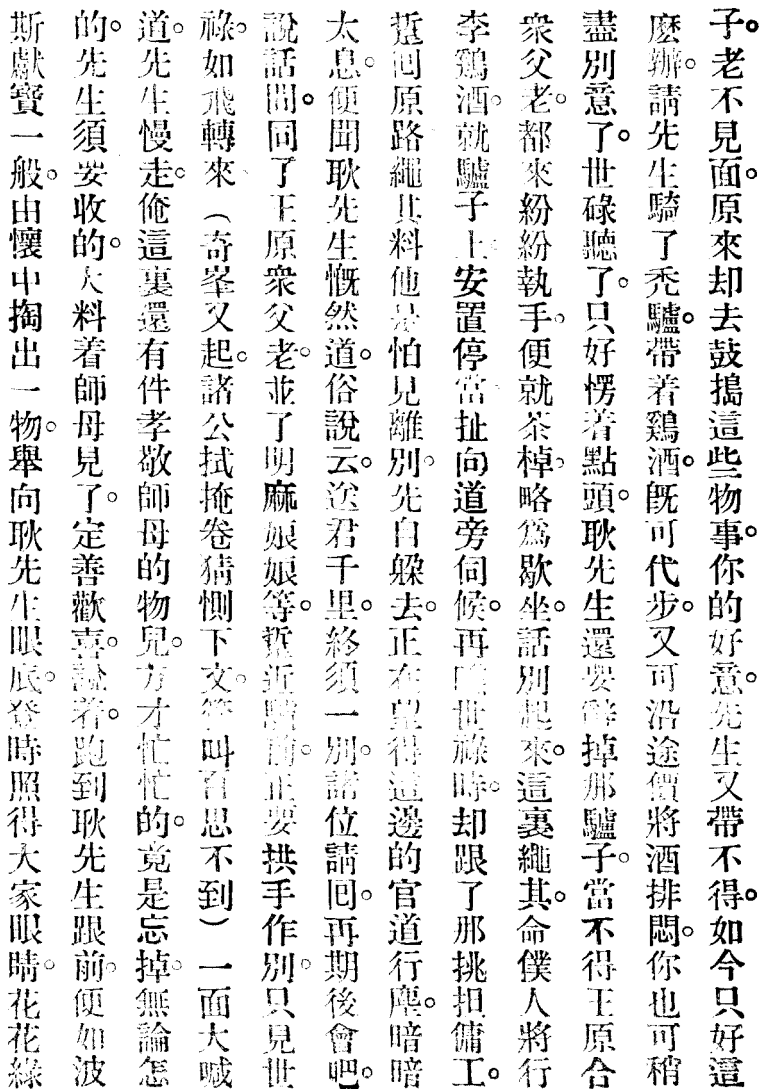 子。老不見面。原來却去鼓搗這些物事。你的好意。先生又帶不得。如今只好這
麽辦。請先生騎了禿驢。帶着鷄酒。旣可代步。又可沿途價將酒排悶。你也可稍
盡別意了。世碌聽了。只好愣着點頭。耿先生還要辭掉那驢子。當不得王原合
衆父老。都來紛紛執手。便就茶棹。略爲歇坐。話別起來。這裏繩其。命僕人將行
李鷄酒。就驢子上安置停當。扯向道旁伺候。再世祿時。却跟了那挑担傭工。
踅回原路。繩其料他是怕見離別。先自躱去。正在望得這邊的官道行塵。暗暗
太息。便聞耿先生慨然道。俗說云。送君千里。終須一別。諸位請回。再期後會吧。
說話間。同了王原衆父老。並了明麻娘娘等。踅近驢前。正要拱手作別。只見世
祿。如飛轉來（奇峯又起。諸公拭掩卷猜惻下文。管叫百思不到）一面大喊
道。先生慢走。俺這裏還有件孝敬師母的物兒。方才忙忙的。竟是忘掉。無論怎
的。先生須要收的。大料着師母見了。定善歡喜。說着。跑到耿先生跟前。便如波
斯獻寶一般。由懷中掏出一物。舉向耿先生眼底。登時照得大家眼睛。花花綠